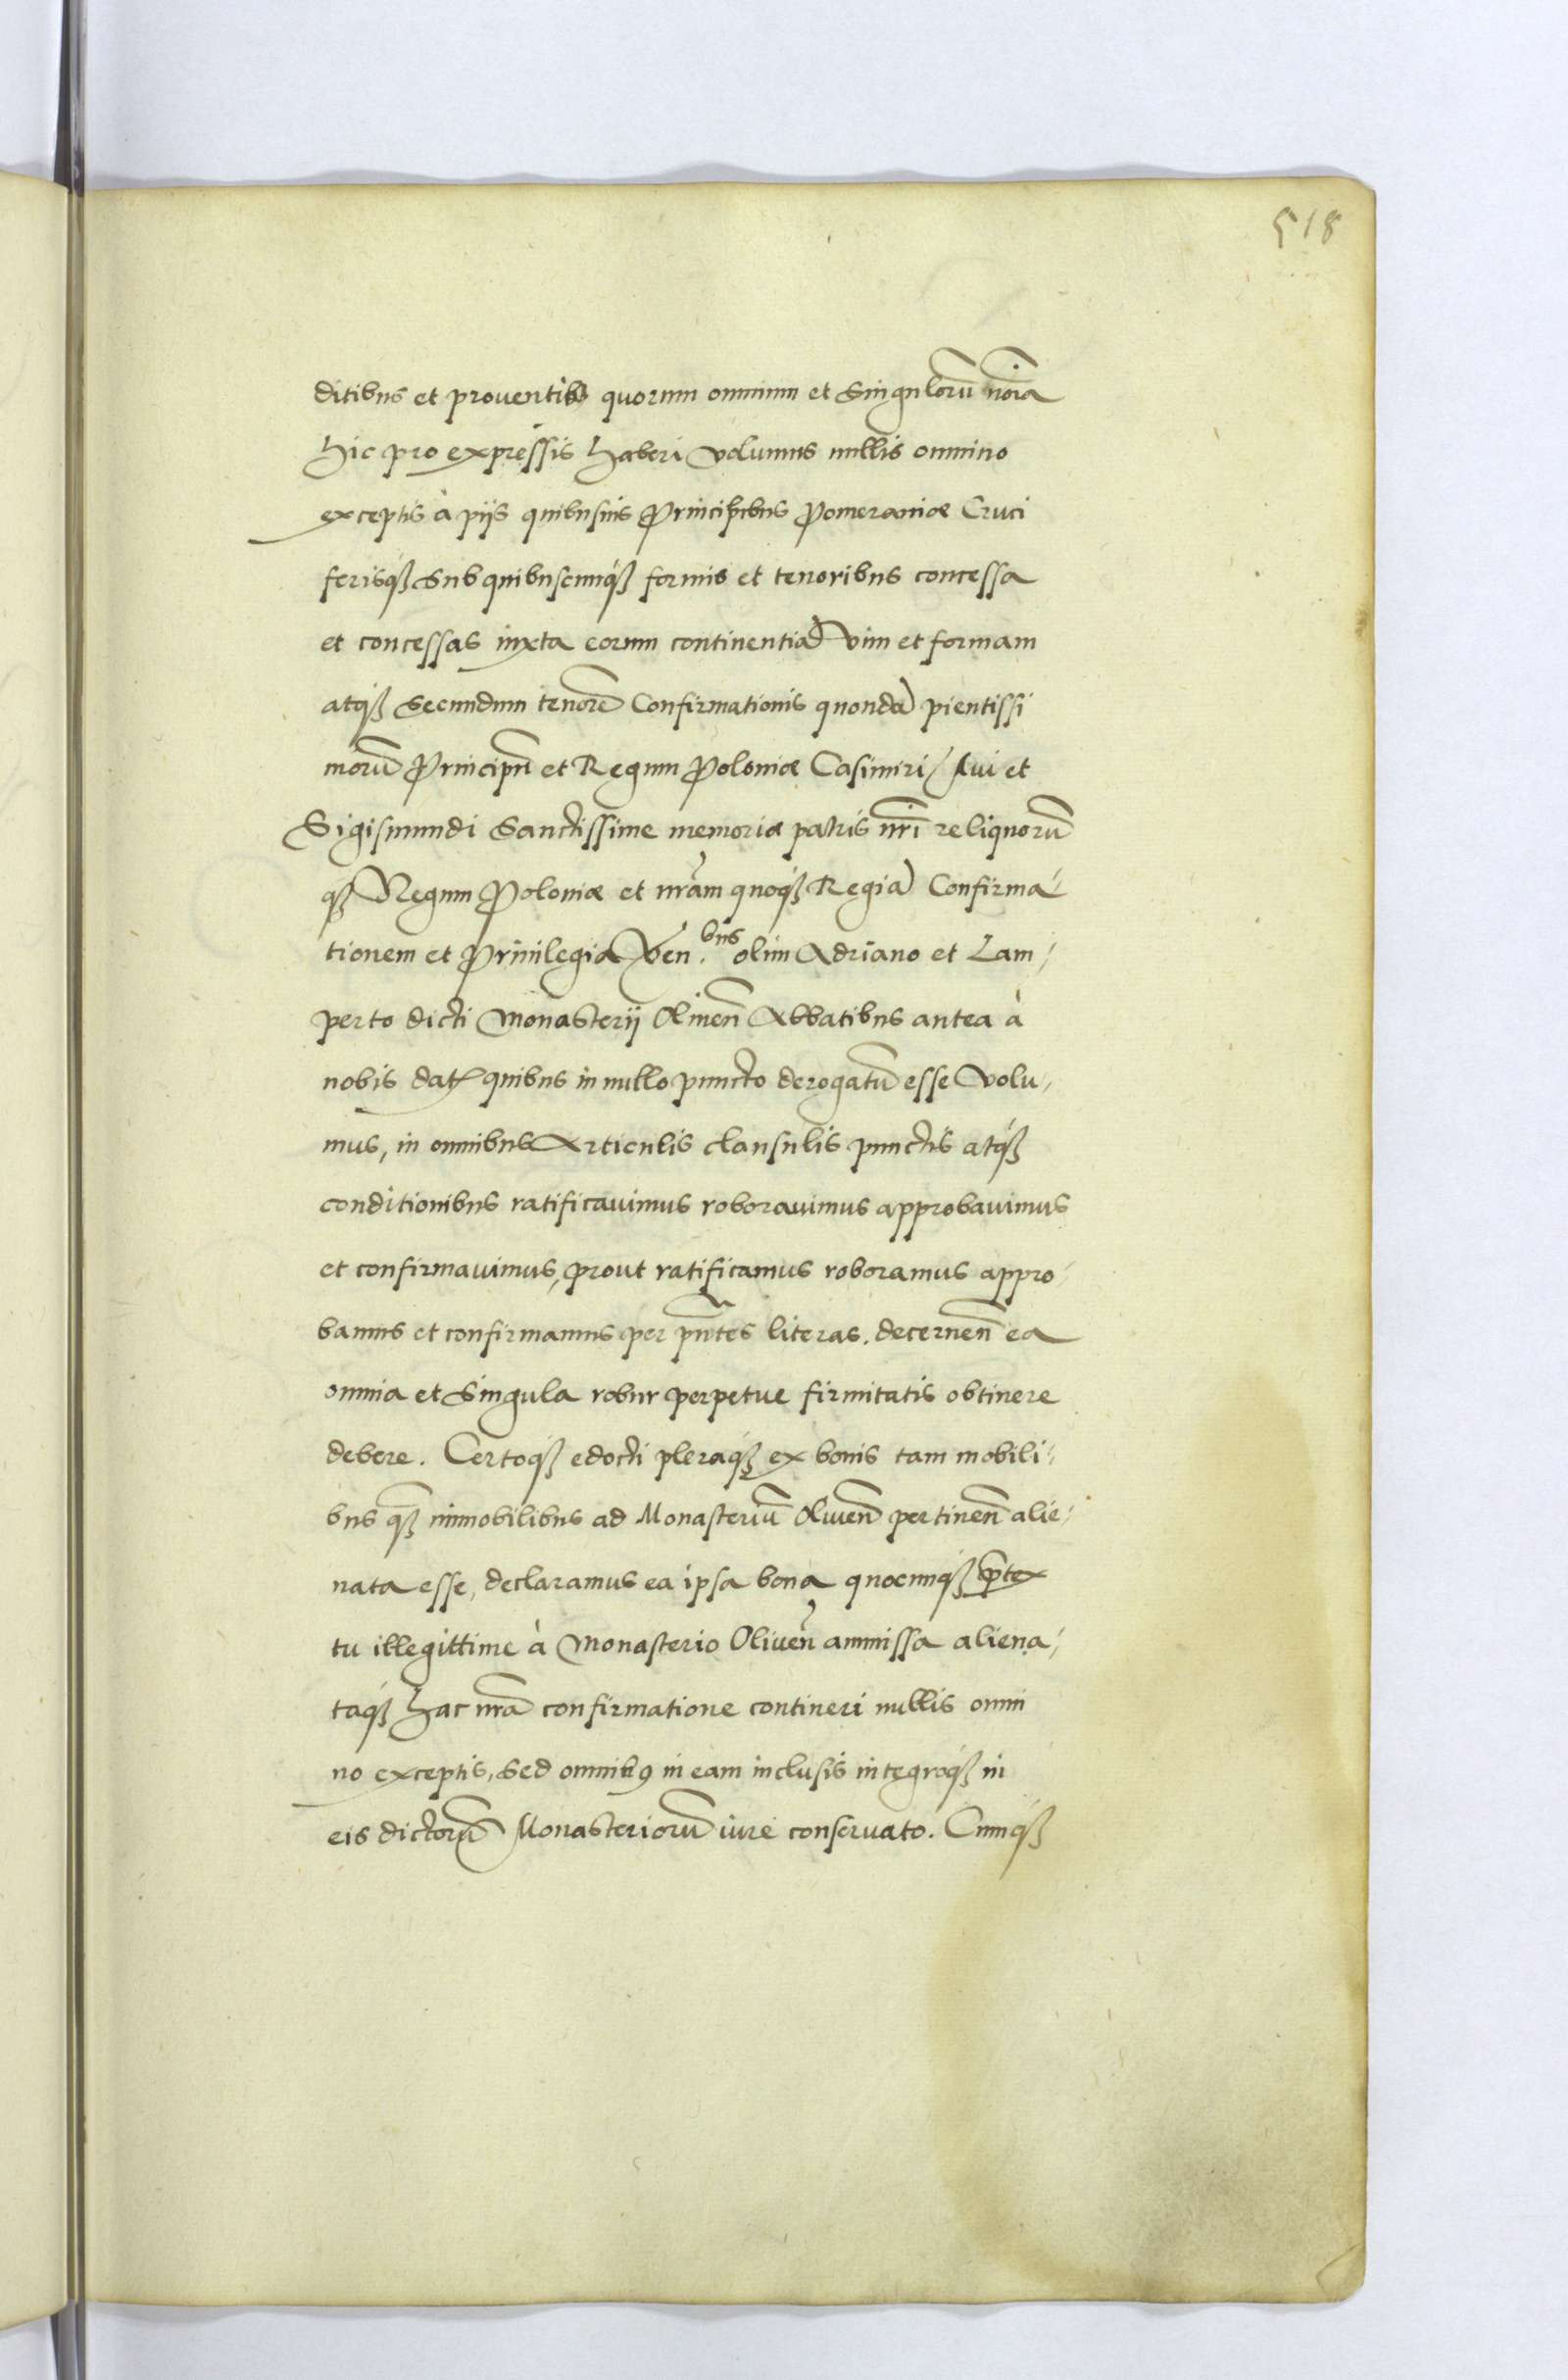 518
ditibus et prouentib quorum omnium et Singulorũ noĩa
hic pro expressis haberi volumus nullis omnino
exceptis à piis quibusuis Principibus Pomeraniæ Cruci
ferisq́ʒ Sub quibuscumq́ʒ formis et tenoribus concessa
et concessas iuxta eorum continentiã vim et formam
atqʒ Secundum tenorẽ Confirmationis quondã pientissi
morũ Principũ et Regum Poloniæ Casimiri Aui et
Sigismundi Sanctissime memoriæ patris nrĩ reliquorũ
qʒ Regum Poloniæ et nrãm quoqʒ Regiã Confirma-
tionem et Priuilegia Ven.bus olim Adriano et Lam-
perto dicti Monasterij Oliuen̄ Abbatibus antea à
nobis dat quibus in nullo puncto derogatũ esse Volu-
mus, in omnibus Articulis clausulis punctis atq́ʒ
conditionibus ratificauimus roborauimus approbauimus
et confirmauimus, prout ratificamus roboramus appro-
bamus et confirmamus per pñtes literas. decernen̄ ea
omnia et Singula robur perpetue firmitatis obtinere
debere. Certoqʒ edocti pleraq́ʒ ex bonis tam mobili-
bus q̃ʒ immobilibus ad Monasteriũ Oliuen̄ pertinen̄ alie-
nata esse, declaramus ea ipsa bona quocumqʒ p̃tex
tu illegittime à Monasterio Oliuen̄ ammissa aliena-
taq́ʒ hac nrã confirmatione contineri nullis omni
no exceptis, Sed omnibꝯ in eam inclusis integroq́ʒ in
eis dictorũ Monasteriorũ iure conseruato. Cumq́ʒ